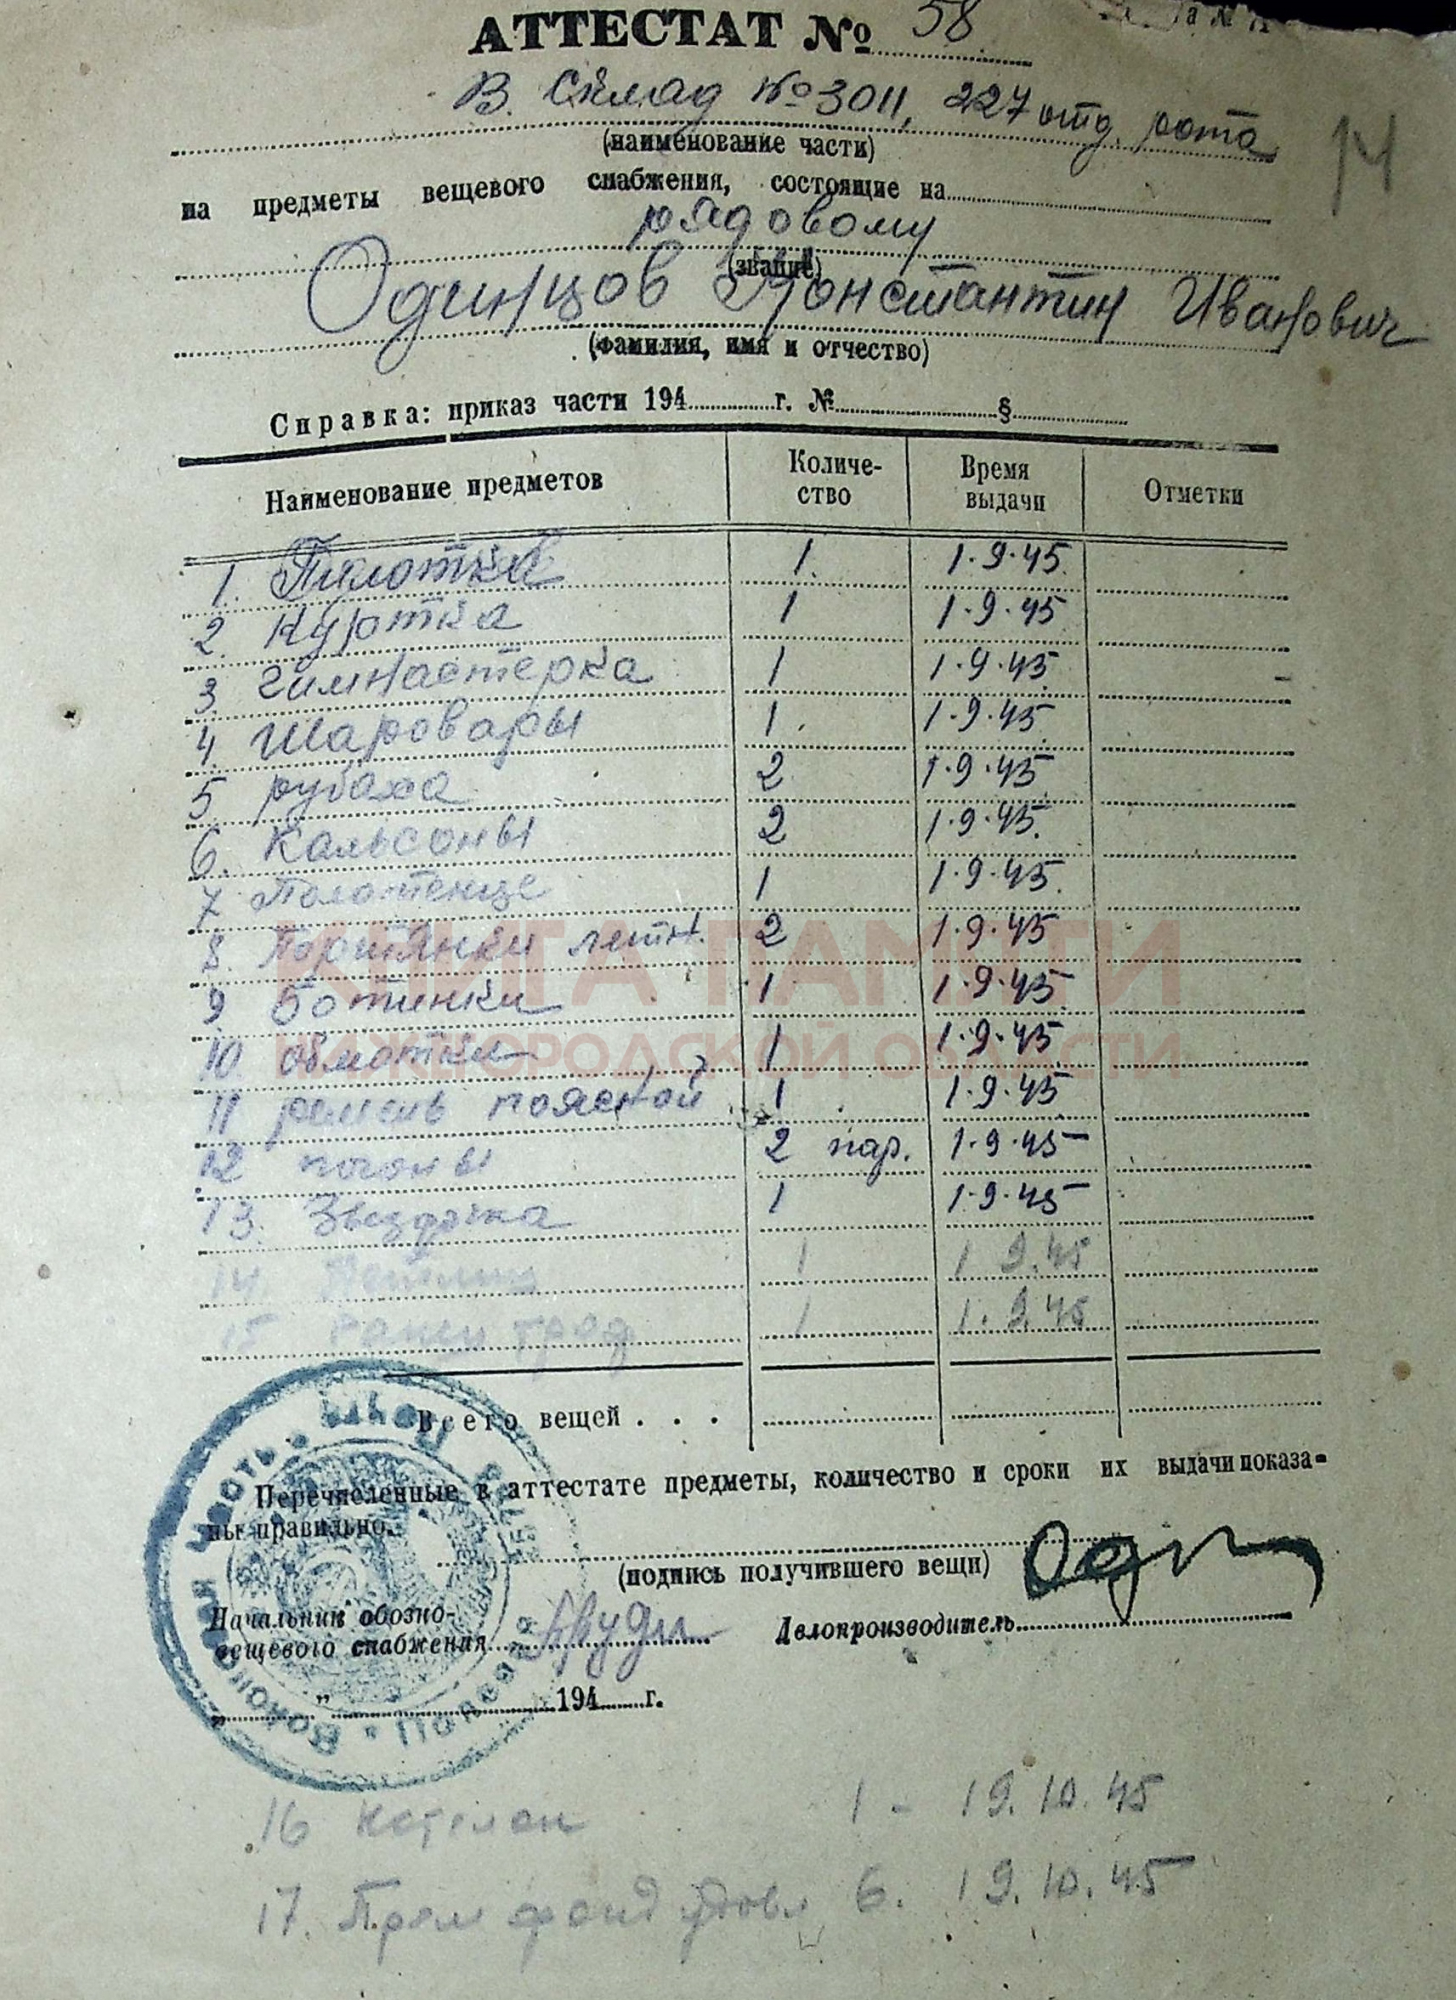 АТТЕСТАТ № 58
В. Склад № 3011, 227 отд. рота
14
(наименование части)
на предметы вещевого снабжения, состоящие на
рядовому
(звание)
Одинцов Константин Иванович
(фамилия, имя и отчество)
Справка: приказ части 194 г. № §
Наименование предметов Количе- ство Время выдачи Отметки
1. Пилотка 1. 1.9.45.
2. Куртка 1 1.9.45
3. Гимнастерка 1 1.9.45
4. Шаровары 1. 1.9.45
5 рубаха 2 1.9.45
6. Кальсоны 2 1.9.45.
7 Полотенце 1 1.9.45.
8. Портянки летн. 2 1.9.45
9 Ботинки 1 1.9.45
10 обмотки 1 1.9.45
11 ремень поясной 1 1.9.45
12 погоны 2 пар. 1.9.45
13. Звездочка 1 1.9.45
14. 1 1 9.45
15 1 1.9.45
КНИГА ПАМЯТИ
НИЖЕГОРОДСКОЙ ОБЛАСТИ
Всего вещей . . .
Перечисленные в аттестате предметы, количество и сроки их выдачи показа-
ны правильно.
(подпись получившего вещи)
Начальник обозно-
вещевого снабжения
Делопроизводитель
„ ” 194 г.
16 Котелок 1 - 19.10.45
17. 6. 19.10.45